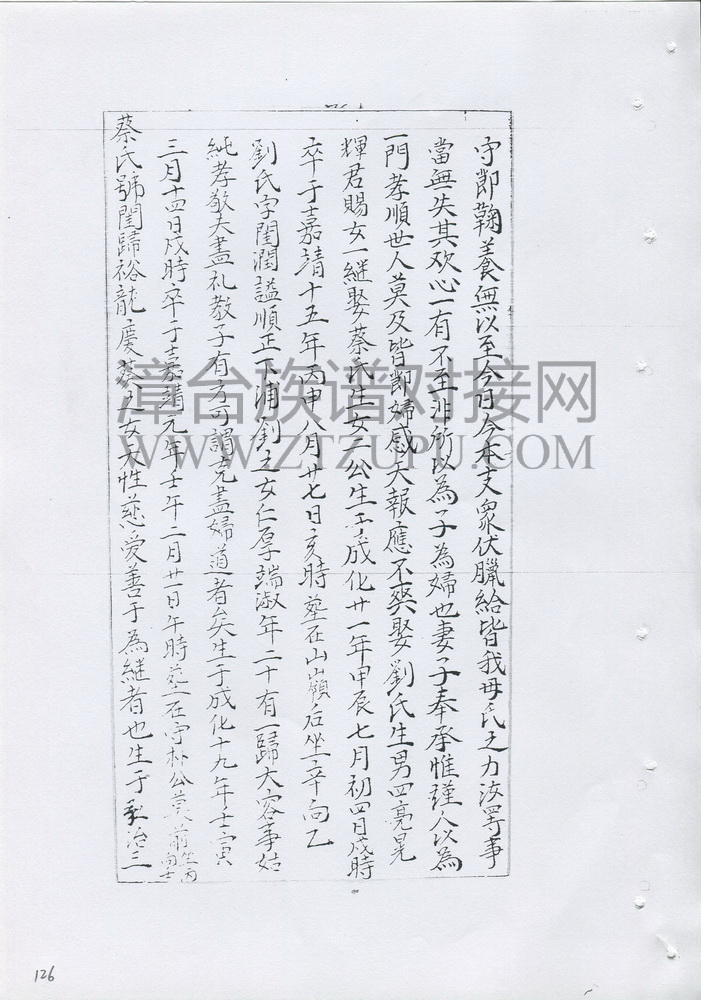 守即鞠養無以至今日今本支衆伏臘給皆我母氏之力汝等事
當無失其欢心一有不至非所以為子為婦也妻子奉承惟謹人以為
一門孝順世人莫及皆即婦感天報應不爽娶劉氏生男四亮晃
輝君賜女一継娶蔡氏生女一公生于成化廿一年甲辰七月初四日戌時
卒于嘉靖十五年丙申八月廿七日亥時塟在山嶺后坐辛向乙
劉氏字閨潤謚順正下浦劉之女仁厚端淑年二十有一歸大容事姑
純孝敬夫盡礼教子有方可謂克盡婦道者矣生于成化十九年壬寅
三月十四日戌時卒于嘉靖元年壬午二月廿一日午時塟在守朴公莫前坐丙向壬
蔡氏號閨歸裕龍慶蔡之女大性慈爱善于為継者也生于弘治三
漳台族谱对接网
WWW.ZTZUPU.COM
126